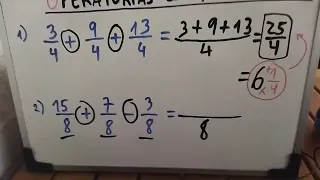 OPERATORIAS
1) 3/4 + 9/4 + 13/4 = (3+9+13)/4 = 25/4
= 6 1/4
2) 15/8 + 7/8 - 3/8 = /8